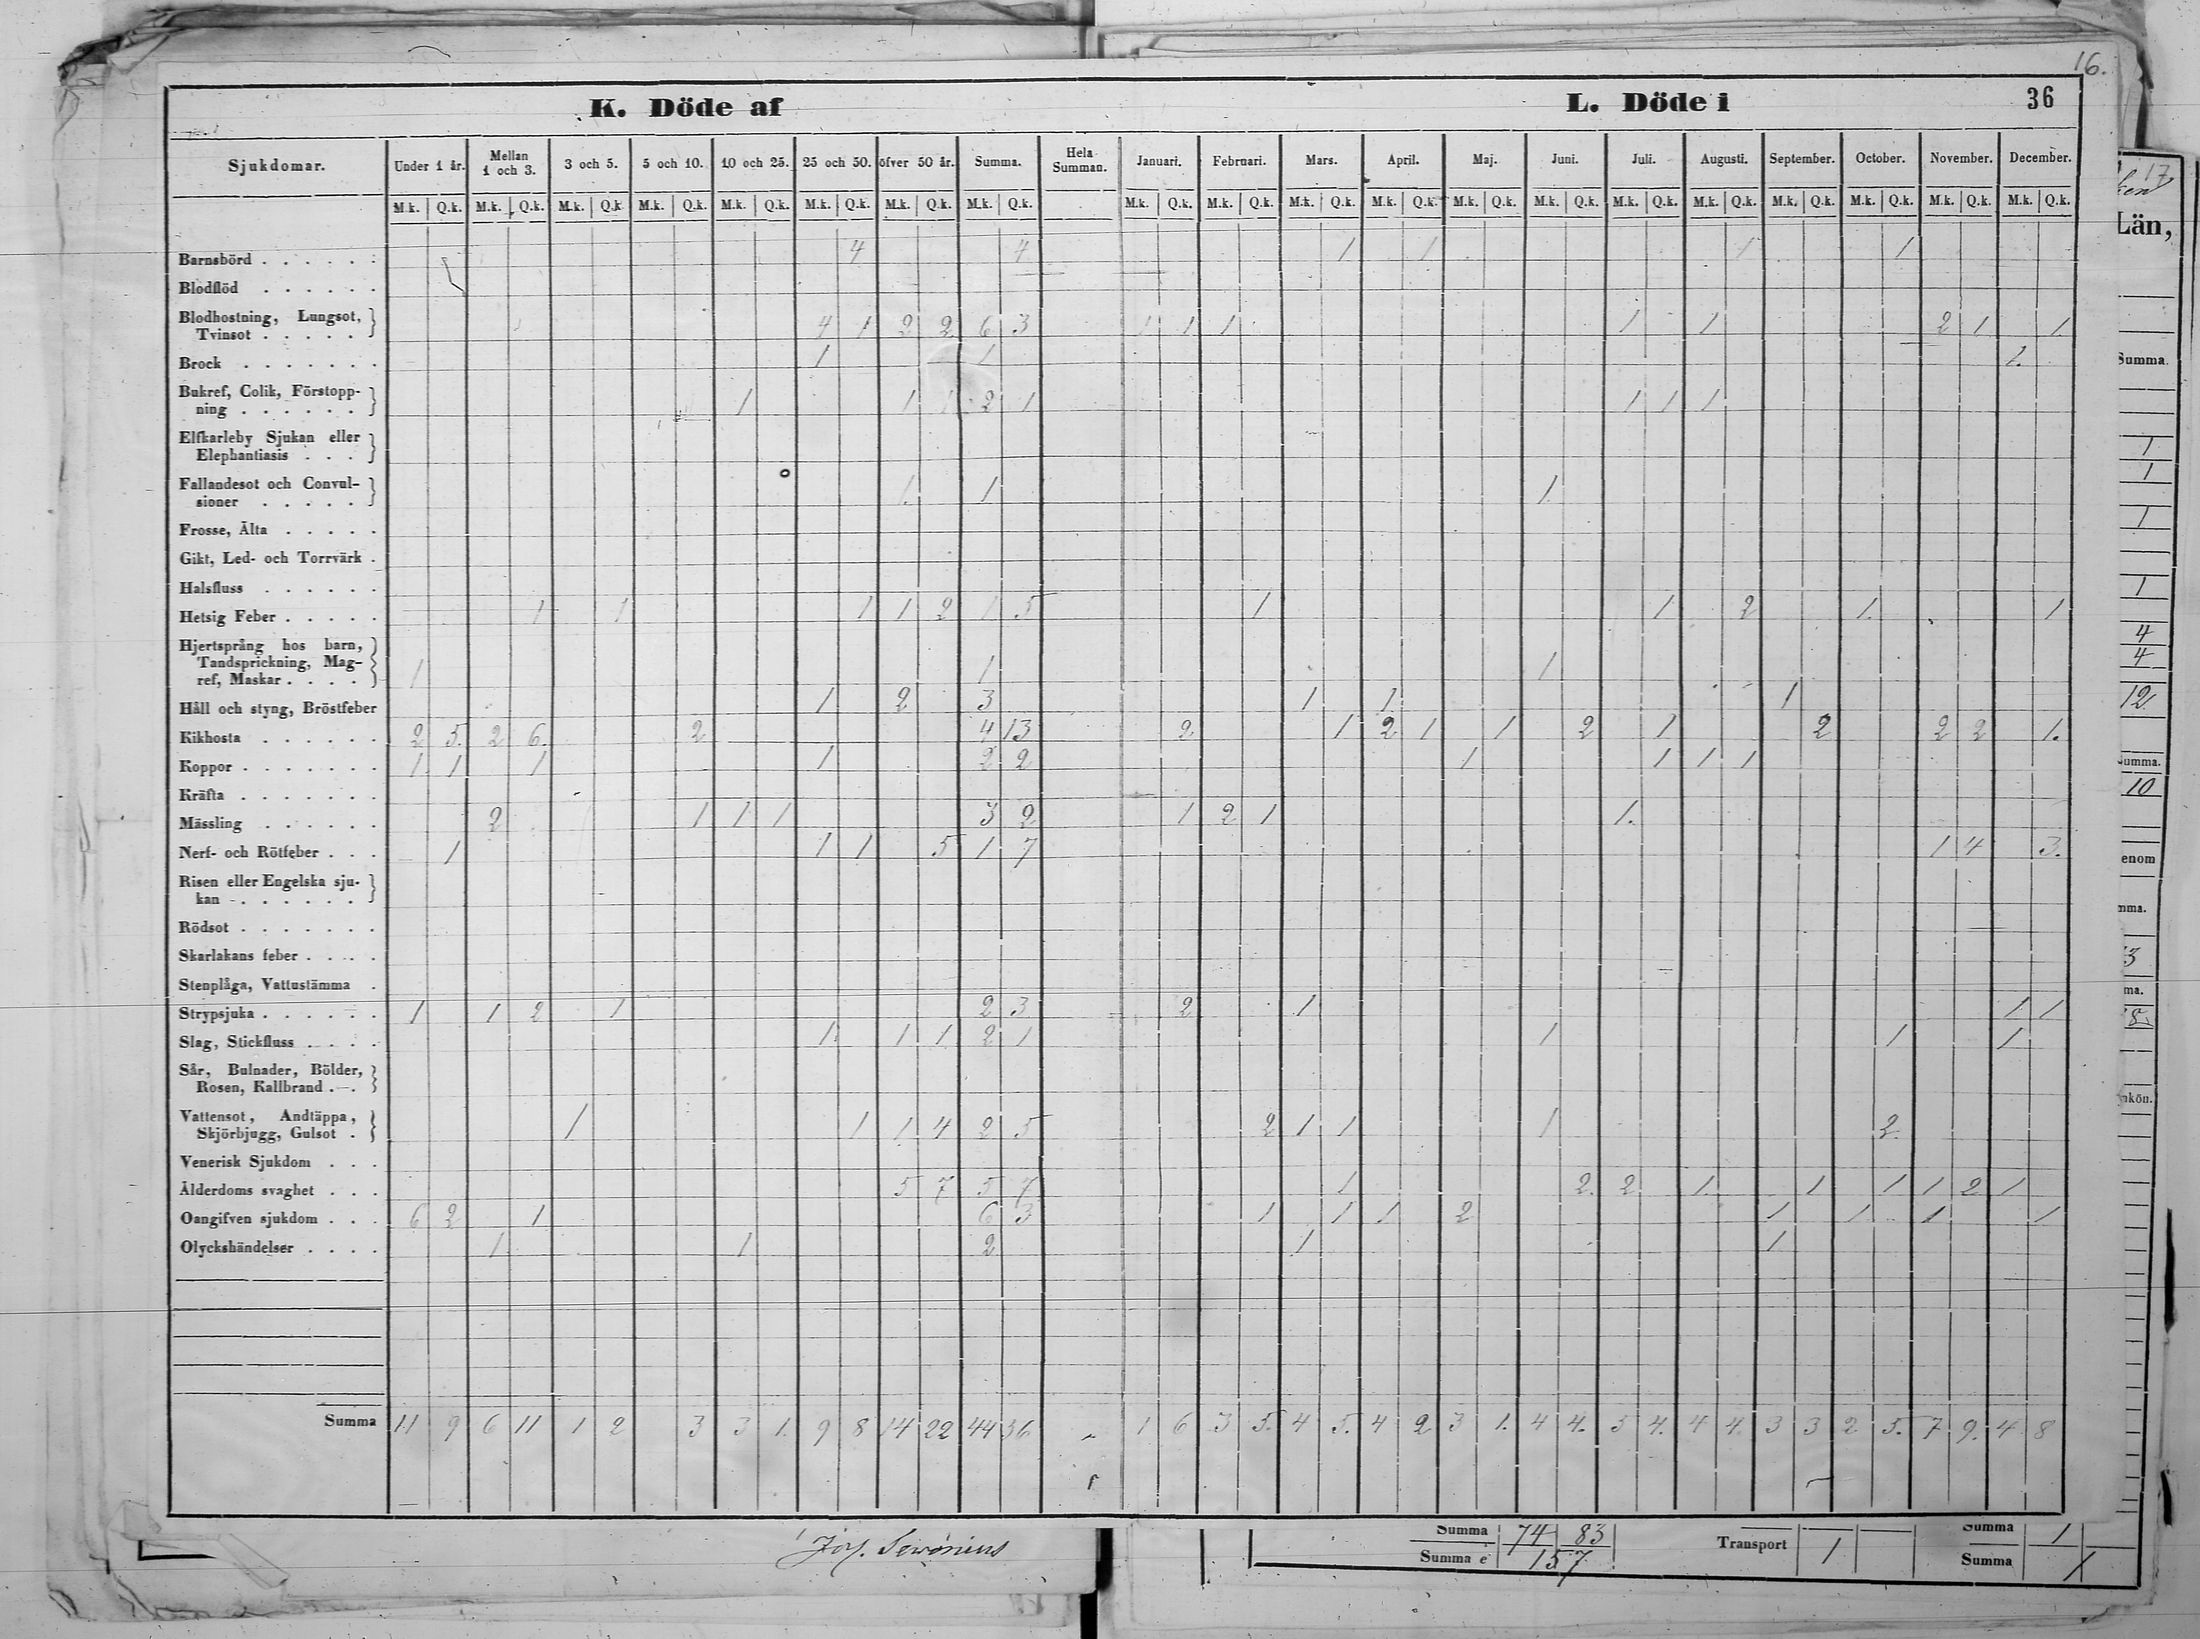 16.
K. Döde af
L. Döde i
36
Sjukdomar. Under 1 år. Mellan 1 och 3. 3 och 5. 5 och 10. 10 och 25. 25 och 50. öfver 50 år. Summa. Hela Summan. Januari. Februari. Mars. April. Maj. Juni. Juli. Augusti. September. October. November. December.
M.k. Q.k. M.k. Q.k. M.k. Q.k. M.k. Q.k. M.k. Q.k. M.k. Q.k. M.k. Q.k. M.k. Q.k. M.k. Q.k. M.k. Q.k. M.k. Q.k. M.k. Q.k. M.k. Q.k. M.k. Q.k. M.k. Q.k. M.k. Q.k. M.k. Q.k. M.k. Q.k. M.k. Q.k. M.k. Q.k.
Barnsbörd . . . . . . 4 4 1 1 1 1
Blodflöd . . . . . .
Blodhostning, Lungsot,
Tvinsot . . . . . 4 1 2 2 6 3 1 1 1 1 1 2 1 1.
Brock . . . . . . . 1 1 1.
Bukref, Colik, Förstopp-
ning . . . . . . 1 1 1 2 1 1 1 1
Elfkarleby Sjukan eller
Elephantiasis . . .
Fallandesot och Convul-
sioner . . . . . 1. 1 1
Frosse, Älta . . . . .
Gikt, Led- och Torrvärk .
Halsfluss . . . . . .
Hetsig Feber . . . . . 1 1 1 1 2 1 5 1 1 2 1. 1
Hjertsprång hos barn,
Tandsprickning, Mag-
ref, Maskar . . . . 1 1 1
Håll och styng, Bröstfeber 1 2 3 1 1 1
Kikhosta . . . . . . 2 5. 2 6. 2 4 13 2 1 2 1 1 2 1 2 2 2 1.
Koppor . . . . . . . 1. 1 1 1 2 2 1 1 1 1
Kräfta . . . . . . .
Mässling . . . . . . 2 1 1 1 3 2 1 2 1 1.
Nerf- och Rötfeber . . . 1 1 1 5 1 7 1 4 3.
Risen eller Engelska sju-
kan . . . . . .
Rödsot . . . . . . .
Skarlakans feber . . . .
Stenplåga, Vattustämma .
Strypsjuka . . . . . . 1 1 2 1 2 3 2 1 1 1
Slag, Stickfluss . . . . 1. 1 1 2 1 1 1 1
Sår, Bulnader, Bölder,
Rosen, Kallbrand . .
Vattensot, Andtäppa,
Skjörbjugg, Gulsot . 1 1 1 4 2 5 2 1 1 1 2.
Venerisk Sjukdom . . .
Ålderdoms svaghet . . . 5 7 5 7 1 2. 2 1. 1 1 1 2 1
Oangifven sjukdom . . . 6 2 1 6 3 1 1 1 2 1 1 1 1
Olyckshändelser . . . . 1 1 2 1 1
Summa 11 9 6 11 1 2 3 3 1. 9 8 14 22 44 36 1 6 3 5. 4 5. 4 2 3 1. 4 4. 5 4. 4 4. 3 3 2 5. 7 9. 4 8
17
ken
Län,
Summa
1
1
1
1
4
4
12
Summa.
10
enom
mma.
13
ma.
nkön.
Summa 74 83
Summa e 157
Transport 1
Summa 1
Summa 1